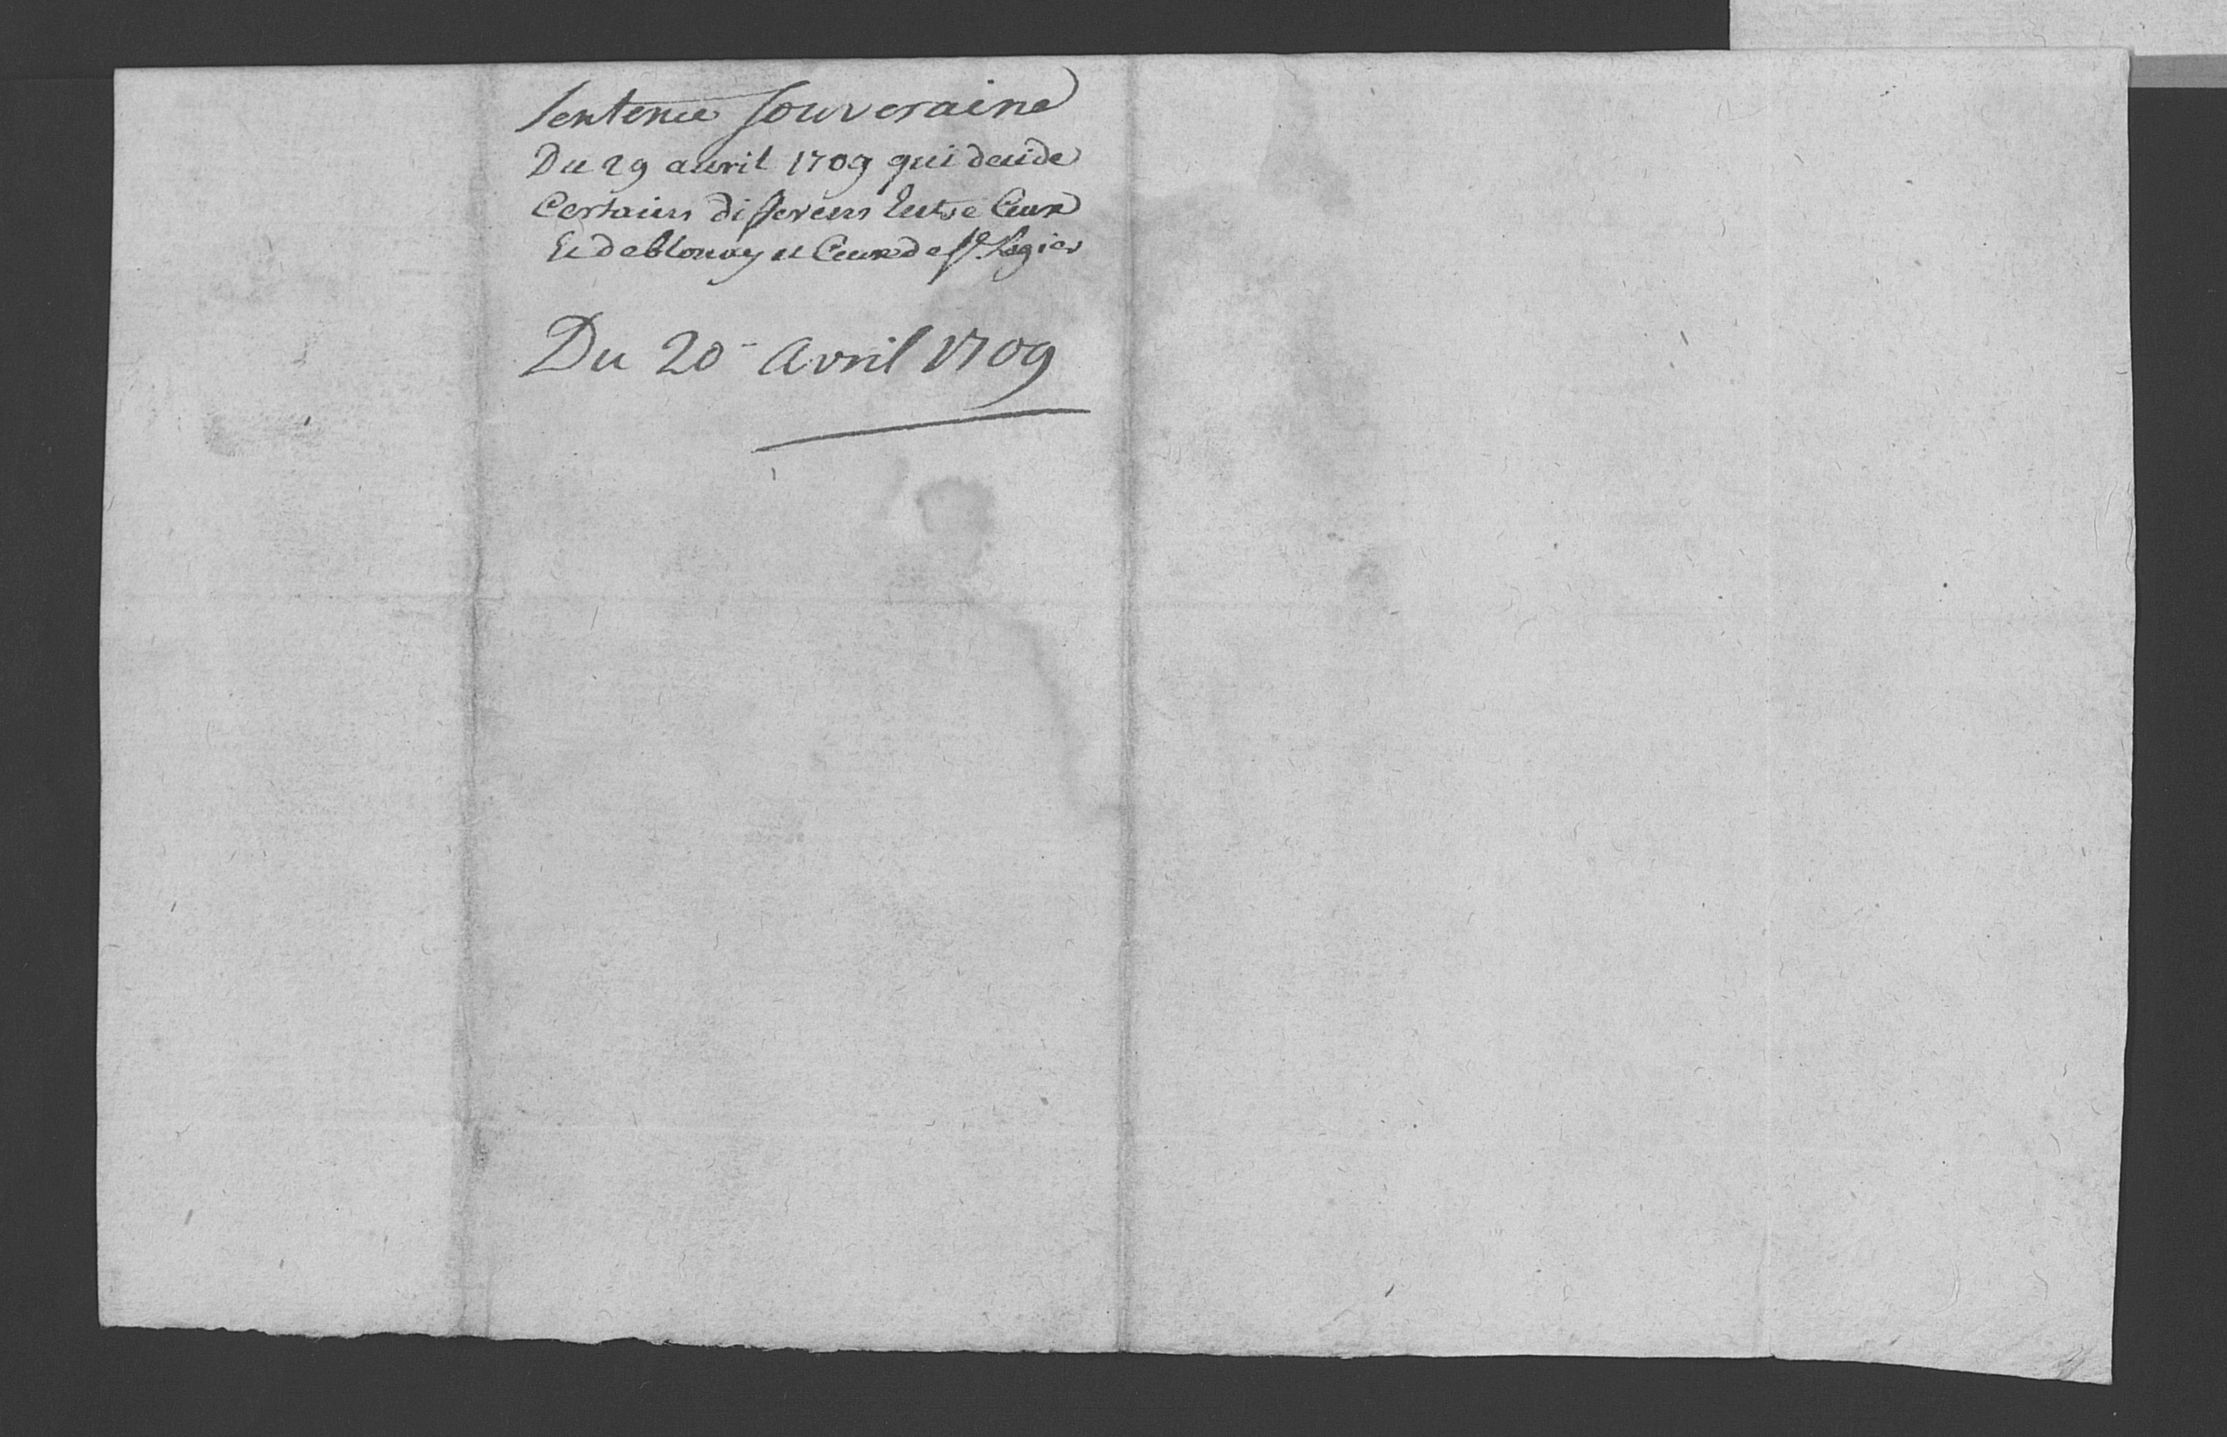 Sentence Souveraine
Du 29 avvril 1709 qui decide
Certains differens Entre Ceux
de blonay et Ceux de St Legier
Du 20 Avril 1709